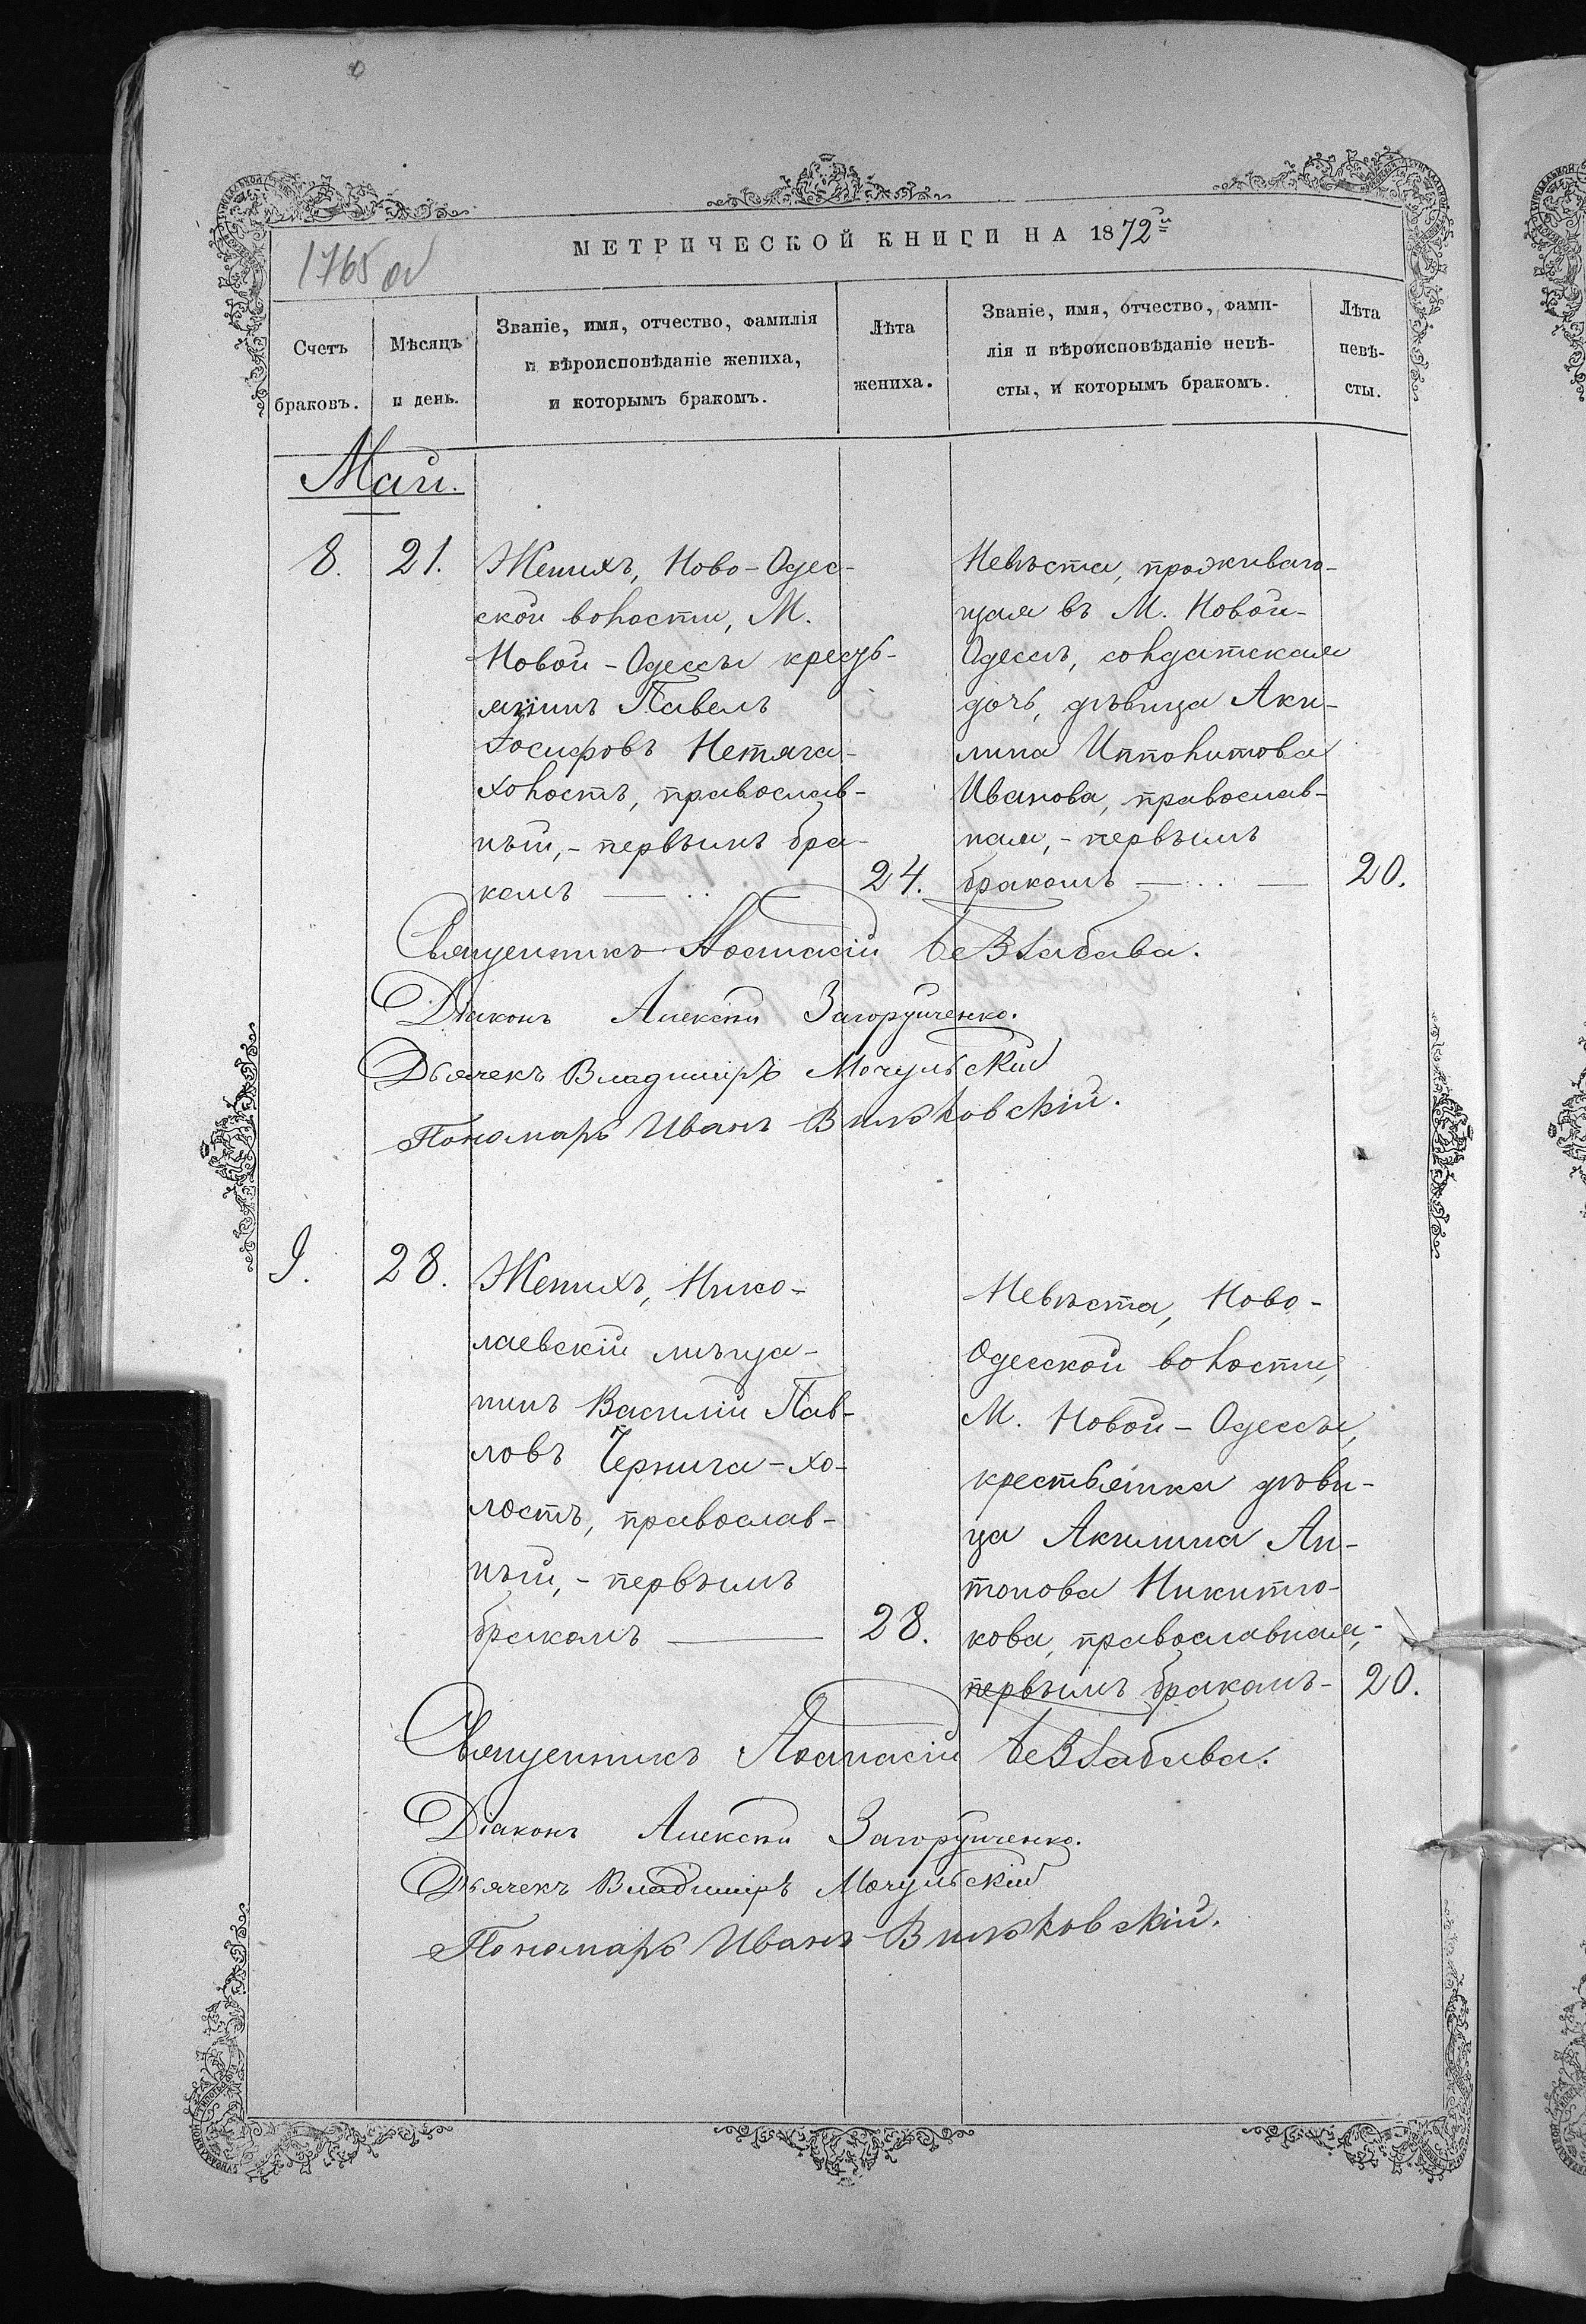 МЕТРИЧЕСКОЙ КНИГИ НА 1872й
1765 об
Счетъ браковъ.
Мѣсяцъ и день.
Званіе, имя, отчество, фамилія
и вѣроисповѣданіе жениха,
и которымъ бракомъ.
Лѣта
жениха.
Званіе, имя, отчество, фами-
лія и вѣроисповѣданіе невѣ-
сты, и которымъ бракомъ.
Лѣта
невѣ-
сты.
Май.
8. 21.
Женихъ, Ново-Одес-
ской волости, М.
Новой-Одессы кресть-
янинъ Павелъ
Іосифовъ Нетяга-
холостъ, православ-
ный,- первымъ бра-
комъ 24.
Невѣста, проживаю-
щая въ М. Новой-
Одессѣ, солдатская
дочь, дѣвица Аки-
лина Ипполитова
Иванова, православ-
ная,- первымъ
бракомъ 20.
Священникъ Аѳанасій Беззабава.
Діаконъ Алексѣй Загоруйченко.
Дьячекъ Владиміръ Мочульскій
Пономарь Иванъ Вильковскій.
9. 28.
Женихъ, Нико-
лаевскій мѣща-
нинъ Василій Пав-
ловъ Чернига-хо-
лостъ, православ-
ный,- первымъ
бракомъ 28.
Невѣста, Ново-
Одесской волости,
М. Новой-Одессы,
крестьянка дѣви-
ца Акилина Ан-
тонова Никитю-
кова, православная,-
первымъ бракомъ- 20.
Священникъ Аѳанасій Беззабава.
Діаконъ Алексѣй Загоруйченко.
Дьячекъ Владиміръ Мочульскій
Пономарь Иванъ Вильковскій.